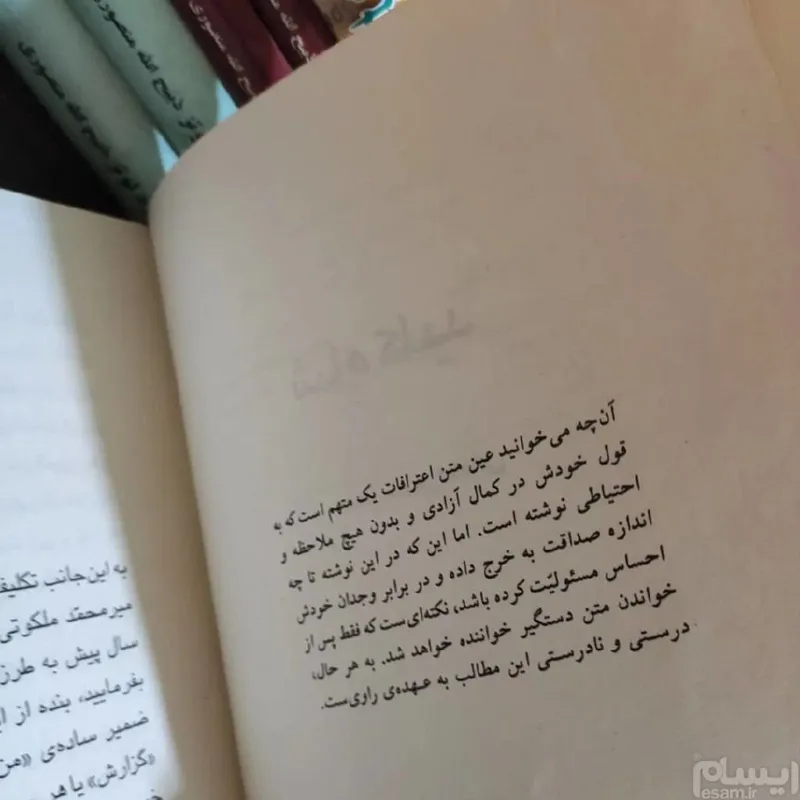 ذبیح الله منصوری
ذبیح الله منصوری
شاه کلید
آن‌چه می‌خوانید عین متن اعترافات یک متهم است که به
قول خودش در کمال آزادی و بدون هیچ ملاحظه و
احتیاطی نوشته است. اما این که در این نوشته تا چه
اندازه صداقت به خرج داده و در برابر وجدان خودش
احساس مسئولیّت کرده باشد، نکته‌ای‌ست که فقط پس از
خواندن متن دستگیر خواننده خواهد شد. به هر حال،
درستی و نادرستی این مطالب به عهده‌ی راوی‌ست.
به این‌جانب تکلیف
میرمحمّد ملکوتی
سال پیش به طرز
بفرمایید، بنده از
ضمیر ساده‌ی «من
«گزارش» یا هر
ایسام
esam.ir